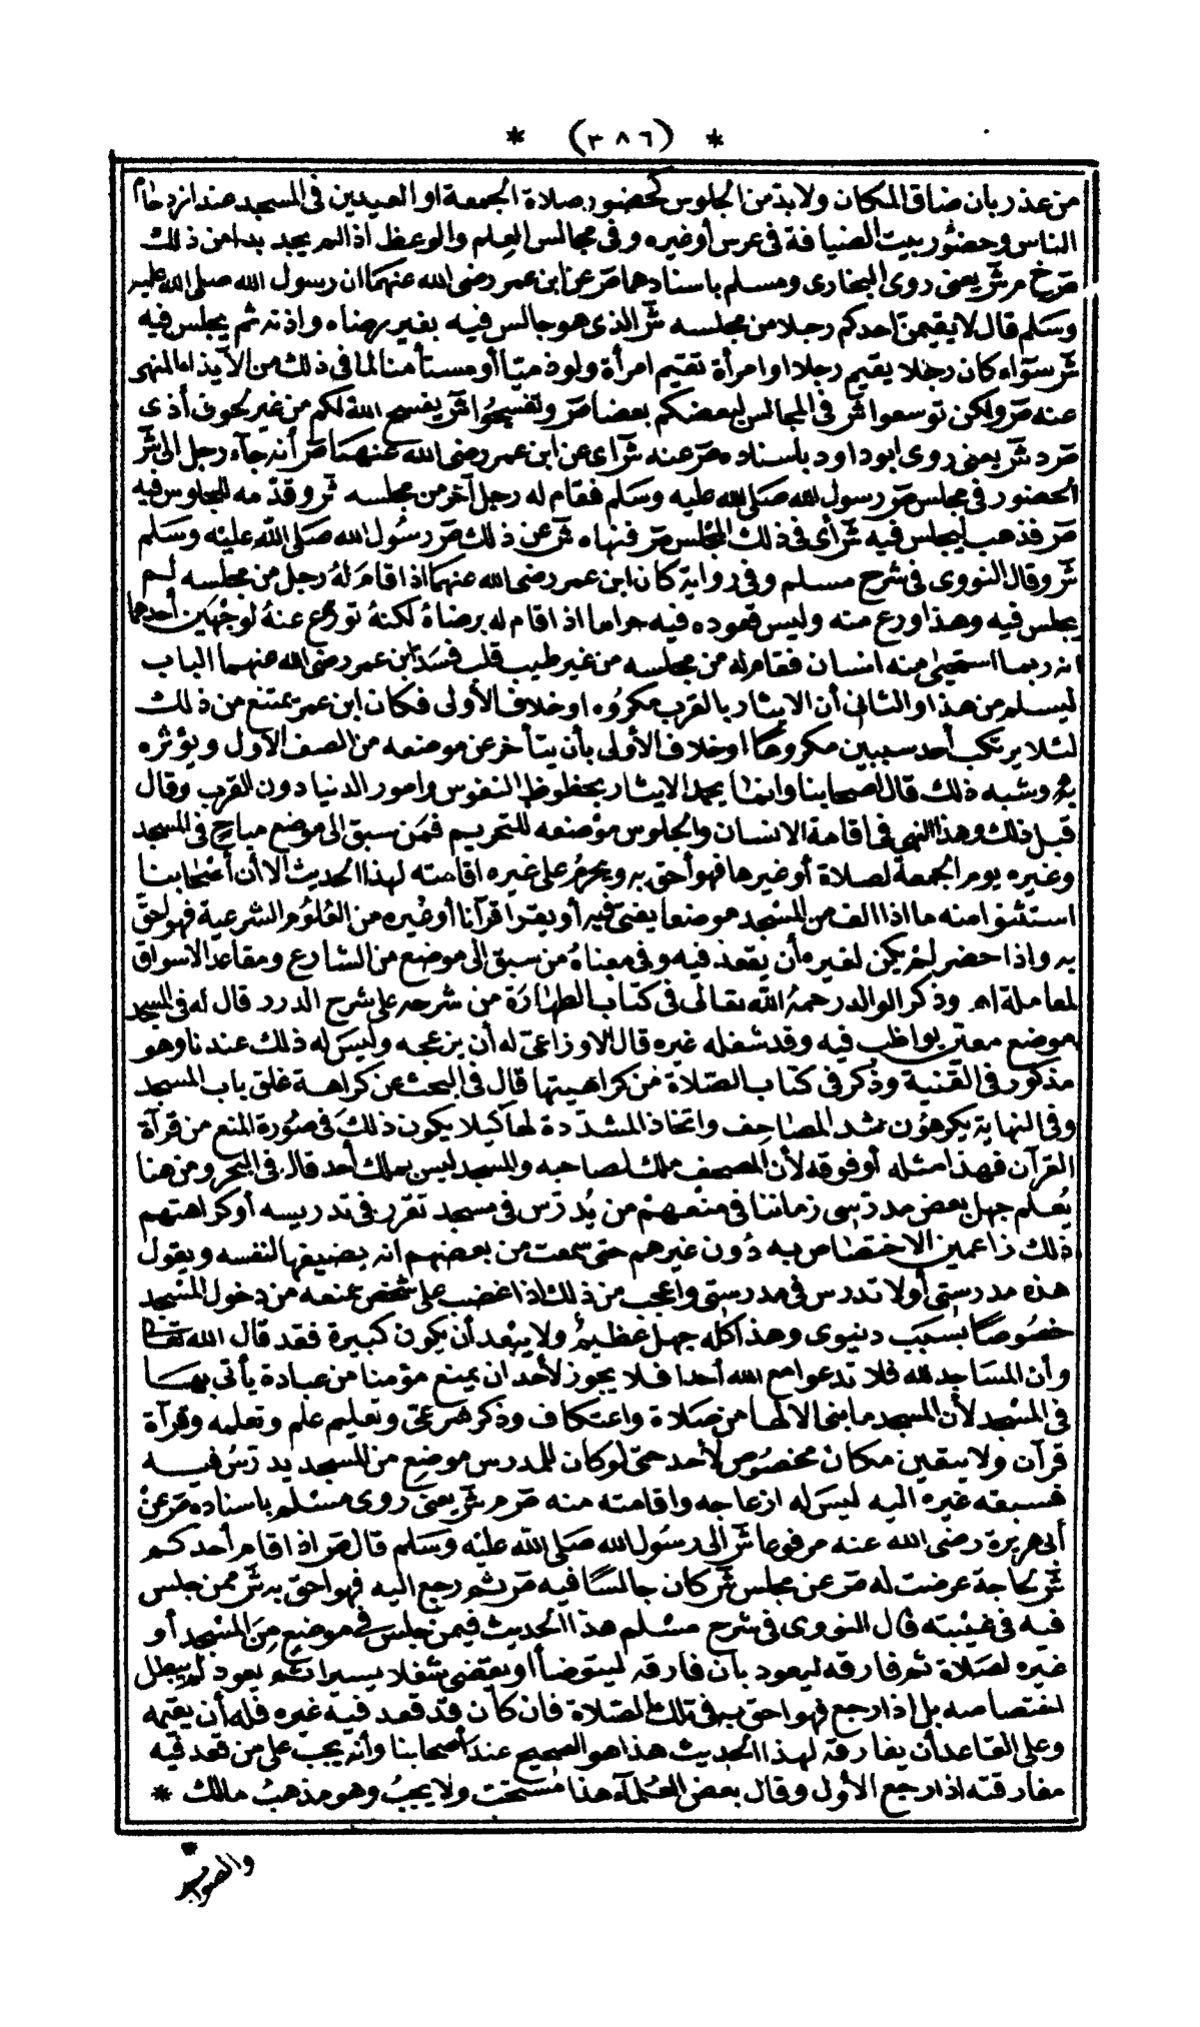 * (٣٨٦) *
من عذر بان ضاق المكان ولا بد من الجلوس كحضور صلاة الجمعة او العيدين في المسجد عند ازدحام
الناس وحضور بيت الضيافة في عرس أو غيره وفي مجالس العلم والوعظ اذا لم يجد بدا من ذلك
صَرخ م شَ يعنى روى البخارى ومسلم باسنادهما صَر عن ابن عمر رضى الله عنهما ان رسول الله صلى الله عليه
وسلم قال لا يقيمن احدكم رجلا من مجلسه شَ الذى هو جالس فيه بغير رضاه واذنه ثم يجلس فيه
شَر سوآء كان رجلا يقيم رجلا او امرأة تقيم امرأة ولو ذميّا أو مستأمنا لما في ذلك من الآيذاء المنهى
عنه صَر ولكن توسعوا شَر في المجالس لبعضكم بعضا صَر وتفسحُوا شَر يفسح الله لكم من غير لحوق أذى
صَر د شَر يعنى روى ابو داود باسناده صَر عنه شَر اى عن ابن عمر رضى الله عنهما صَر أنه جآء رجل الى شَر
الحضور في مجلس صَر رسول الله صَلى الله عليه وسَلم فقام له رجل آخر من مجلسه شَر وقدّمه للجلوس فيه
صَر فذهب ليجلس فيه شَر أى في ذلك المجلس صَر فنهاه شَر عن ذلك صَر رسُول الله صَلى الله عليْه وسَلم
شَر وقال النووى في شرح مسلم وفي رواية كان ابن عمر رضى الله عنهما اذا قام لهُ رجل من مجلسه لم
يجلس فيه وهذا ورع منه وليس قعوده فيه حراما اذا قام له برضاهُ لكنهُ تورع عنهُ لوجهَين أحدهما
انه ربما استحيى منه انسان فقام له من مجلسه من غير طيب قلب فسَدّ ابن عمر رضى الله عنهما الباب
ليسلم من هذا والثانى أن الايثار بالقرب مكروُه او خلاف الأولى فكان ابن عمر يمتنع من ذلك
لئلا يرتكب أحد سببين مكروهًا او خلاف الأولى بأن يتأخر عن موضعه من الصف الأول ويؤثره
به وشبه ذلك قال اصحابنا وانما يحمد الايثار بحظوظ النفوس وامور الدنيا دون القرب وقال
قبل ذلك وهذا النهى في اقامة الانسان والجلوس موْضعه للتحريم فمَن سبق الى موضع مباحٍ في المسجد
وغيره يوم الجمعة لصلاة أو غيرها فهو أحق به ويحرمُ على غيره اقامته لهذا الحديث الا أن أصْحابنا
استثنوا منه ما اذا الف من المسْجد موضعا يفتى فيه أو يقرا قرآنا أو غيره من العُلوُم الشرعية فهو احقّ
به واذا حضر لم يكن لغيره أن يقعد فيه وفي معناهُ من سبق الى موضع من الشارع ومقاعد الاسواق
لمعاملة اهـ وذكر الوالد رحمهُ الله تعالى في كتاب الطهارَة من شرحه على شرح الدرر قال له في المسجد
موضع معيّن يواظب فيه وقد شغله غيره قال الاوزاعىّ له أن يزعجه وليْسَ له ذلك عندنا وهو
مذكور في القنية وذكر في كتاب الصّلاة من كراهيتها قال في البحث عن كراهة غلق باب المسجد
وفي النهاية يكرهوُن شد المصاحِف واتخاذ المشدّدة لها كيلا يكون ذلكَ في صُورة المنع من قرآة
القرآن فهذا مثله أو فوقه لأن المصحف ملك لصاحبه والمسجد ليس بملك أحد قال في البحر ومن هنا
يُعلم جهل بعض مدرّسى زماننا في منْعهمْ من يُدرّس في مسجد تقرر في تدريسه أو كراهتهم
ذلك زاعمين الاختصَاص به دُون غيرهم حتى سمعت من بعضهم انه يضيفها لنفسه ويقول
هذه مدرستى أو لا تدرس في مدرستى واعجب من ذلك اذا غضب على شخص يمنعه من دخول المسْجد
خصُوصًا بسبَب دنيوى وهذا كله جهل عظيمٌ ولا يبْعد أن يكون كبيرة فقد قال الله تعَالى
وأن المسَاجد لله فلا تدعوا مع الله أحدا فلا يجوز لأحد ان يمنع مؤمنا من عبادة يأتى بهَا
في المسْجد لأن المسجد ما بنى الا لها من صَلاة واعتكاف وذكر شرعىّ وتعليم علم وتعلمه وقرآة
قرآن ولا يتعين مكان مخصُوص لأحد حتى لو كان للمدرس موضع من المسجد يدرّسُ فيه
فسبقه غيره اليه ليسَ له ازعاجه واقامته منه صَر م شَر يعنى روى مسْلم باسناده صَر عن
أبى هريرة رضى الله عنه مرفوعا شَر الى رسُول الله صَلى الله عليْه وسَلم قال صَر اذا قام أحدكم
شَر لحاجة عرضت له صَر عن مجلس شَر كان جالسًا فيه صَر ثم رجع اليه فهو احق به شَر ممن جلس
فيه في غيْبته قال النووى في شرح مسْلم هذا الحديث فيمن جلسَ في موضعٍ مِنَ المسْجد أو
غيره لصَلاة ثم فارقه ليعود بأن فارقه ليتوضأ أو يقضى شغلا يسيرا ثم يعود لم يبطل
اختصاصه بل اذا رجع فهو احق به في تلك الصَلاة فان كان قد قعد فيه غيره فله أن يقيمه
وعلى القاعد أن يفارقه لهذا الحديث هذا هو الصحيح عندَ أصحابنا وأنه يجبُ على من قعد فيه
مفارقته اذا رجع الأول وقال بعض العُلمآء هذا مسْتحبّ ولا يجبُ وهو مذهبُ مالك *
والصواب